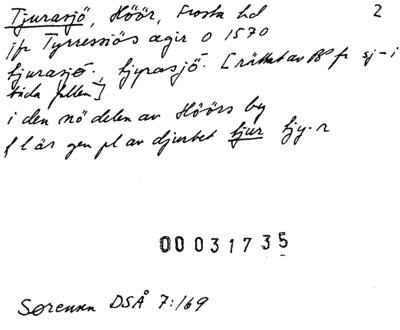 Tjurasjö, Höör, Frosta hd 2
jfr Tyrressiös agir o 1570
tjurasjö., tjyrasjö. [rättat av PP fr sj- i
båda fallen]
i den nö delen av Höörs by
f l är gen pl av djurbet tjur tjy-r
00 031735
Sorensen DSÅ 7:169